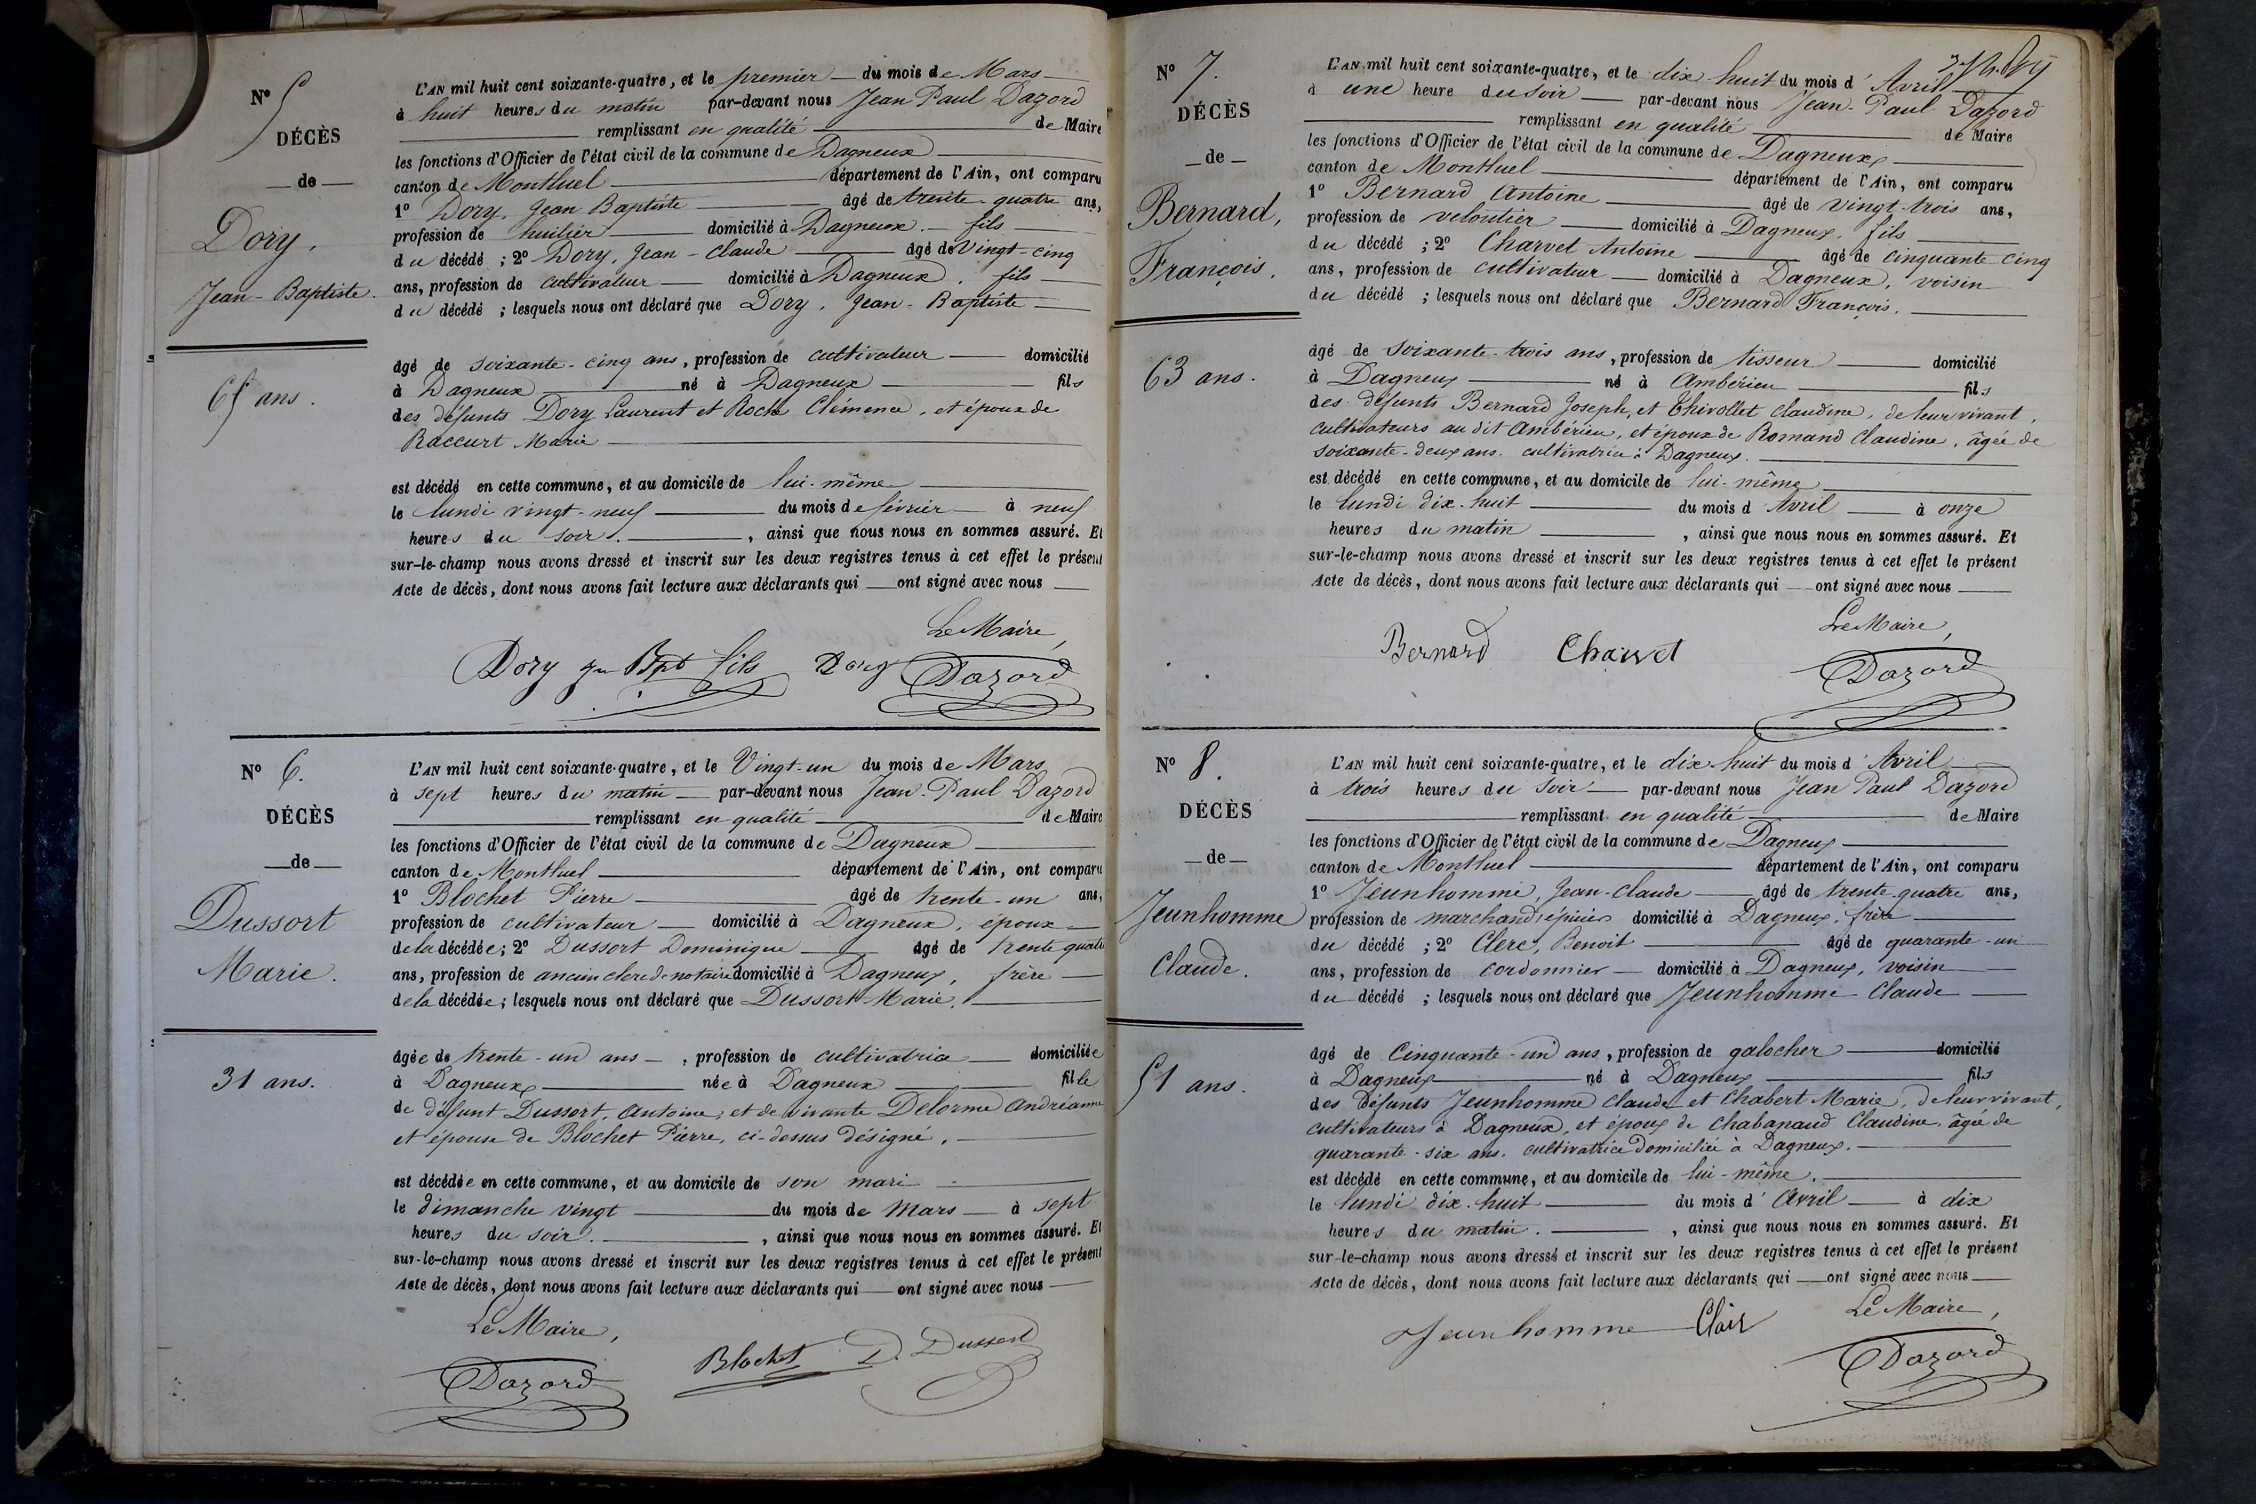 N° 5
DÉCÈS
de
Dory,
Jean-Baptiste.
65 ans.
L'AN mil huit cent soixante-quatre, et le premier du mois de Mars
à huit heures du matin par-devant nous Jean Paul Dazord
remplissant en qualité de Maire
les fonctions d'Officier de l'état civil de la commune de Dagneux
canton de Montluel département de l'Ain, ont comparu
1° Dory, Jean Baptiste âgé de trente-quatre ans,
profession de huilier domicilié à Dagneux. fils
du décédé ; 2° Dory, Jean-Claude âgé de Vingt-cinq
ans, profession de cultivateur domicilié à Dagneux, fils
du décédé ; lesquels nous ont déclaré que Dory, Jean-Baptiste
âgé de soixante-cinq ans, profession de cultivateur domicilié
à Dagneux né à Dagneux fils
des défunts Dory Laurent et Roche Clémence, et époux de
Raccurt Marie
est décédé en cette commune, et au domicile de lui-même
le lundi vingt-neuf du mois de février à neuf
heures du soir. , ainsi que nous nous en sommes assuré. Et
sur-le-champ nous avons dressé et inscrit sur les deux registres tenus à cet effet le présent
Acte de décès, dont nous avons fait lecture aux déclarants qui ont signé avec nous
Le Maire,
Dory Jn Bpt fils Dory Dazord
N° 6.
DÉCÈS
de
Dussort
Marie.
31 ans.
L'AN mil huit cent soixante-quatre, et le Vingt-un du mois de Mars
à sept heures du matin par-devant nous Jean-Paul Dazord
remplissant en qualité de Maire
les fonctions d'Officier de l'état civil de la commune de Dagneux
canton de Montluel département de l'Ain, ont comparu
1° Blochet Pierre âgé de trente-un ans,
profession de cultivateur domicilié à Dagneux, époux
de la décédée ; 2° Dussort Dominique âgé de trente quatre
ans, profession de ancien clerc de notaire domicilié à Dagneux, frère
de la décédée ; lesquels nous ont déclaré que Dussort Marie,
âgée de trente-un ans, profession de cultivatrice domiciliée
à Dagneux née à Dagneux fille
de défunt Dussort, Antoine, et de vivante Delorme Andréanne
et épouse de Blochet Pierre, ci-dessus désigné,
est décédée en cette commune, et au domicile de son mari
le dimanche vingt du mois de Mars à sept
heures du soir. , ainsi que nous nous en sommes assuré. Et
sur-le-champ nous avons dressé et inscrit sur les deux registres tenus à cet effet le présent
Acte de décès, dont nous avons fait lecture aux déclarants qui ont signé avec nous
Le Maire,
Dazord Blochet D. Dussort
N° 7.
DÉCÈS
de
Bernard,
François.
63 ans.
L'AN mil huit cent soixante-quatre, et le dix-huit du mois d'Avril
à une heure du soir par-devant nous Jean-Paul Dazord
remplissant en qualité de Maire
les fonctions d'Officier de l'état civil de la commune de Dagneux
canton de Montluel département de l'Ain, ont comparu
1° Bernard Antoine âgé de vingt-trois ans,
profession de veloutier domicilié à Dagneux, fils
du décédé ; 2° Charvet Antoine âgé de cinquante cinq
ans, profession de cultivateur domicilié à Dagneux, voisin
du décédé ; lesquels nous ont déclaré que Bernard François.
âgé de soixante-trois ans, profession de tisseur domicilié
à Dagneux né à Ambérieu fils
des défunts Bernard Joseph, et Thivollet Claudine, de leur vivant,
cultivateurs au dit Ambérieu, et époux de Romand Claudine, âgée de
soixante-deux ans. cultivatrice à Dagneux.
est décédé en cette commune, et au domicile de lui-même
le lundi dix-huit du mois d'Avril à onze
heures du matin , ainsi que nous nous en sommes assuré. Et
sur-le-champ nous avons dressé et inscrit sur les deux registres tenus à cet effet le présent
Acte de décès, dont nous avons fait lecture aux déclarants qui ont signé avec nous
Le Maire,
Bernard Charvet Dazord
N° 8.
DÉCÈS
de
Jeunhomme
Claude.
51 ans.
L'AN mil huit cent soixante-quatre, et le dix-huit du mois d'Avril
à trois heures du soir par-devant nous Jean Paul Dazord
remplissant en qualité de Maire
les fonctions d'Officier de l'état civil de la commune de Dagneux
canton de Montluel département de l'Ain, ont comparu
1° Jeunhomme, Jean-Claude âgé de trente-quatre ans,
profession de marchand épicier domicilié à Dagneux, frère
du décédé ; 2° Clerc, Benoit âgé de quarante-un
ans, profession de cordonnier domicilié à Dagneux, voisin
du décédé ; lesquels nous ont déclaré que Jeunhomme Claude
âgé de Cinquante-un ans, profession de galocher domicilié
à Dagneux né à Dagneux fils
des défunts Jeunhomme Claude et Chabert Marie, de leur vivant,
cultivateurs à Dagneux, et époux de Chabanaud Claudine, âgée de
quarante-six ans. cultivatrice domiciliée à Dagneux.
est décédé en cette commune, et au domicile de lui-même.
le lundi dix-huit du mois d'Avril à dix
heures du matin. , ainsi que nous nous en sommes assuré. Et
sur-le-champ nous avons dressé et inscrit sur les deux registres tenus à cet effet le présent
Acte de décès, dont nous avons fait lecture aux déclarants qui ont signé avec nous
Le Maire,
Jeunhomme Clair Dazord